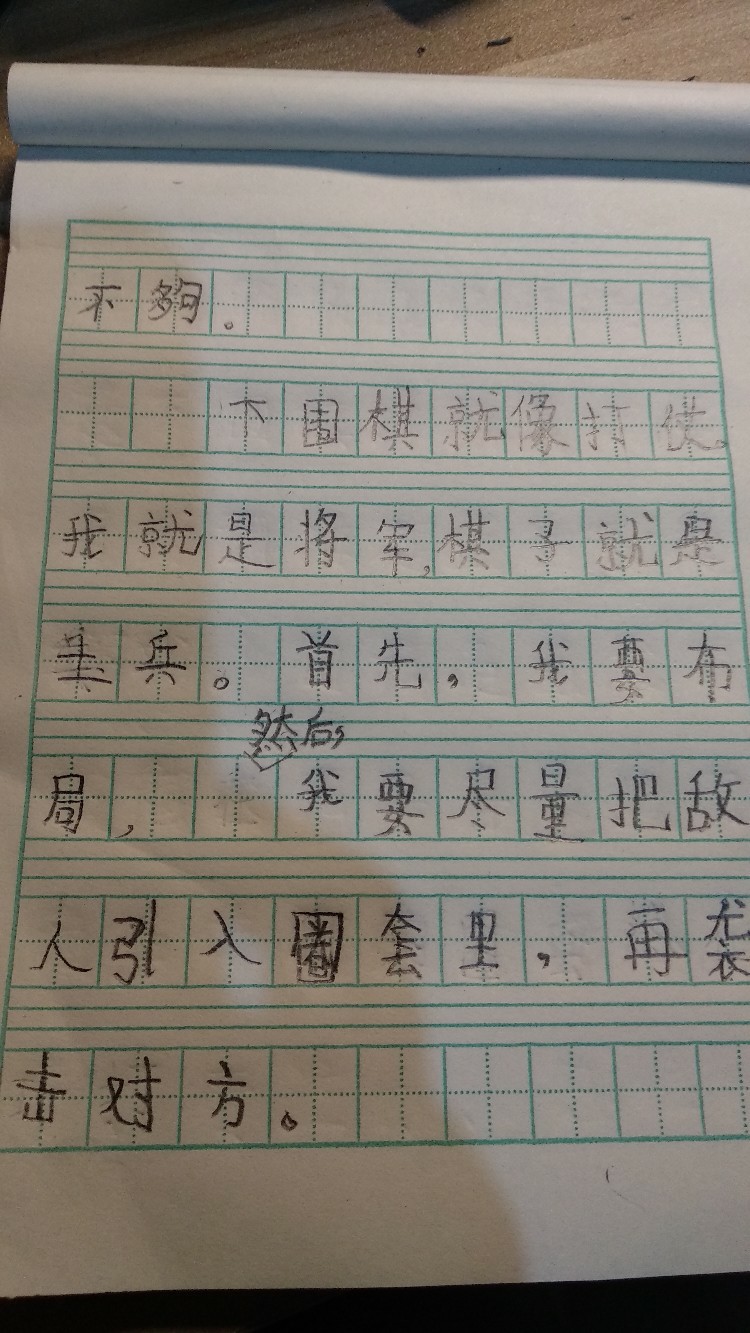 不够。
下围棋就像打仗。
我就是将军,棋子就是
兵。首先,我要布
然后,
局,我要尽量把敌
人引入圈套里,再袭
击对方。